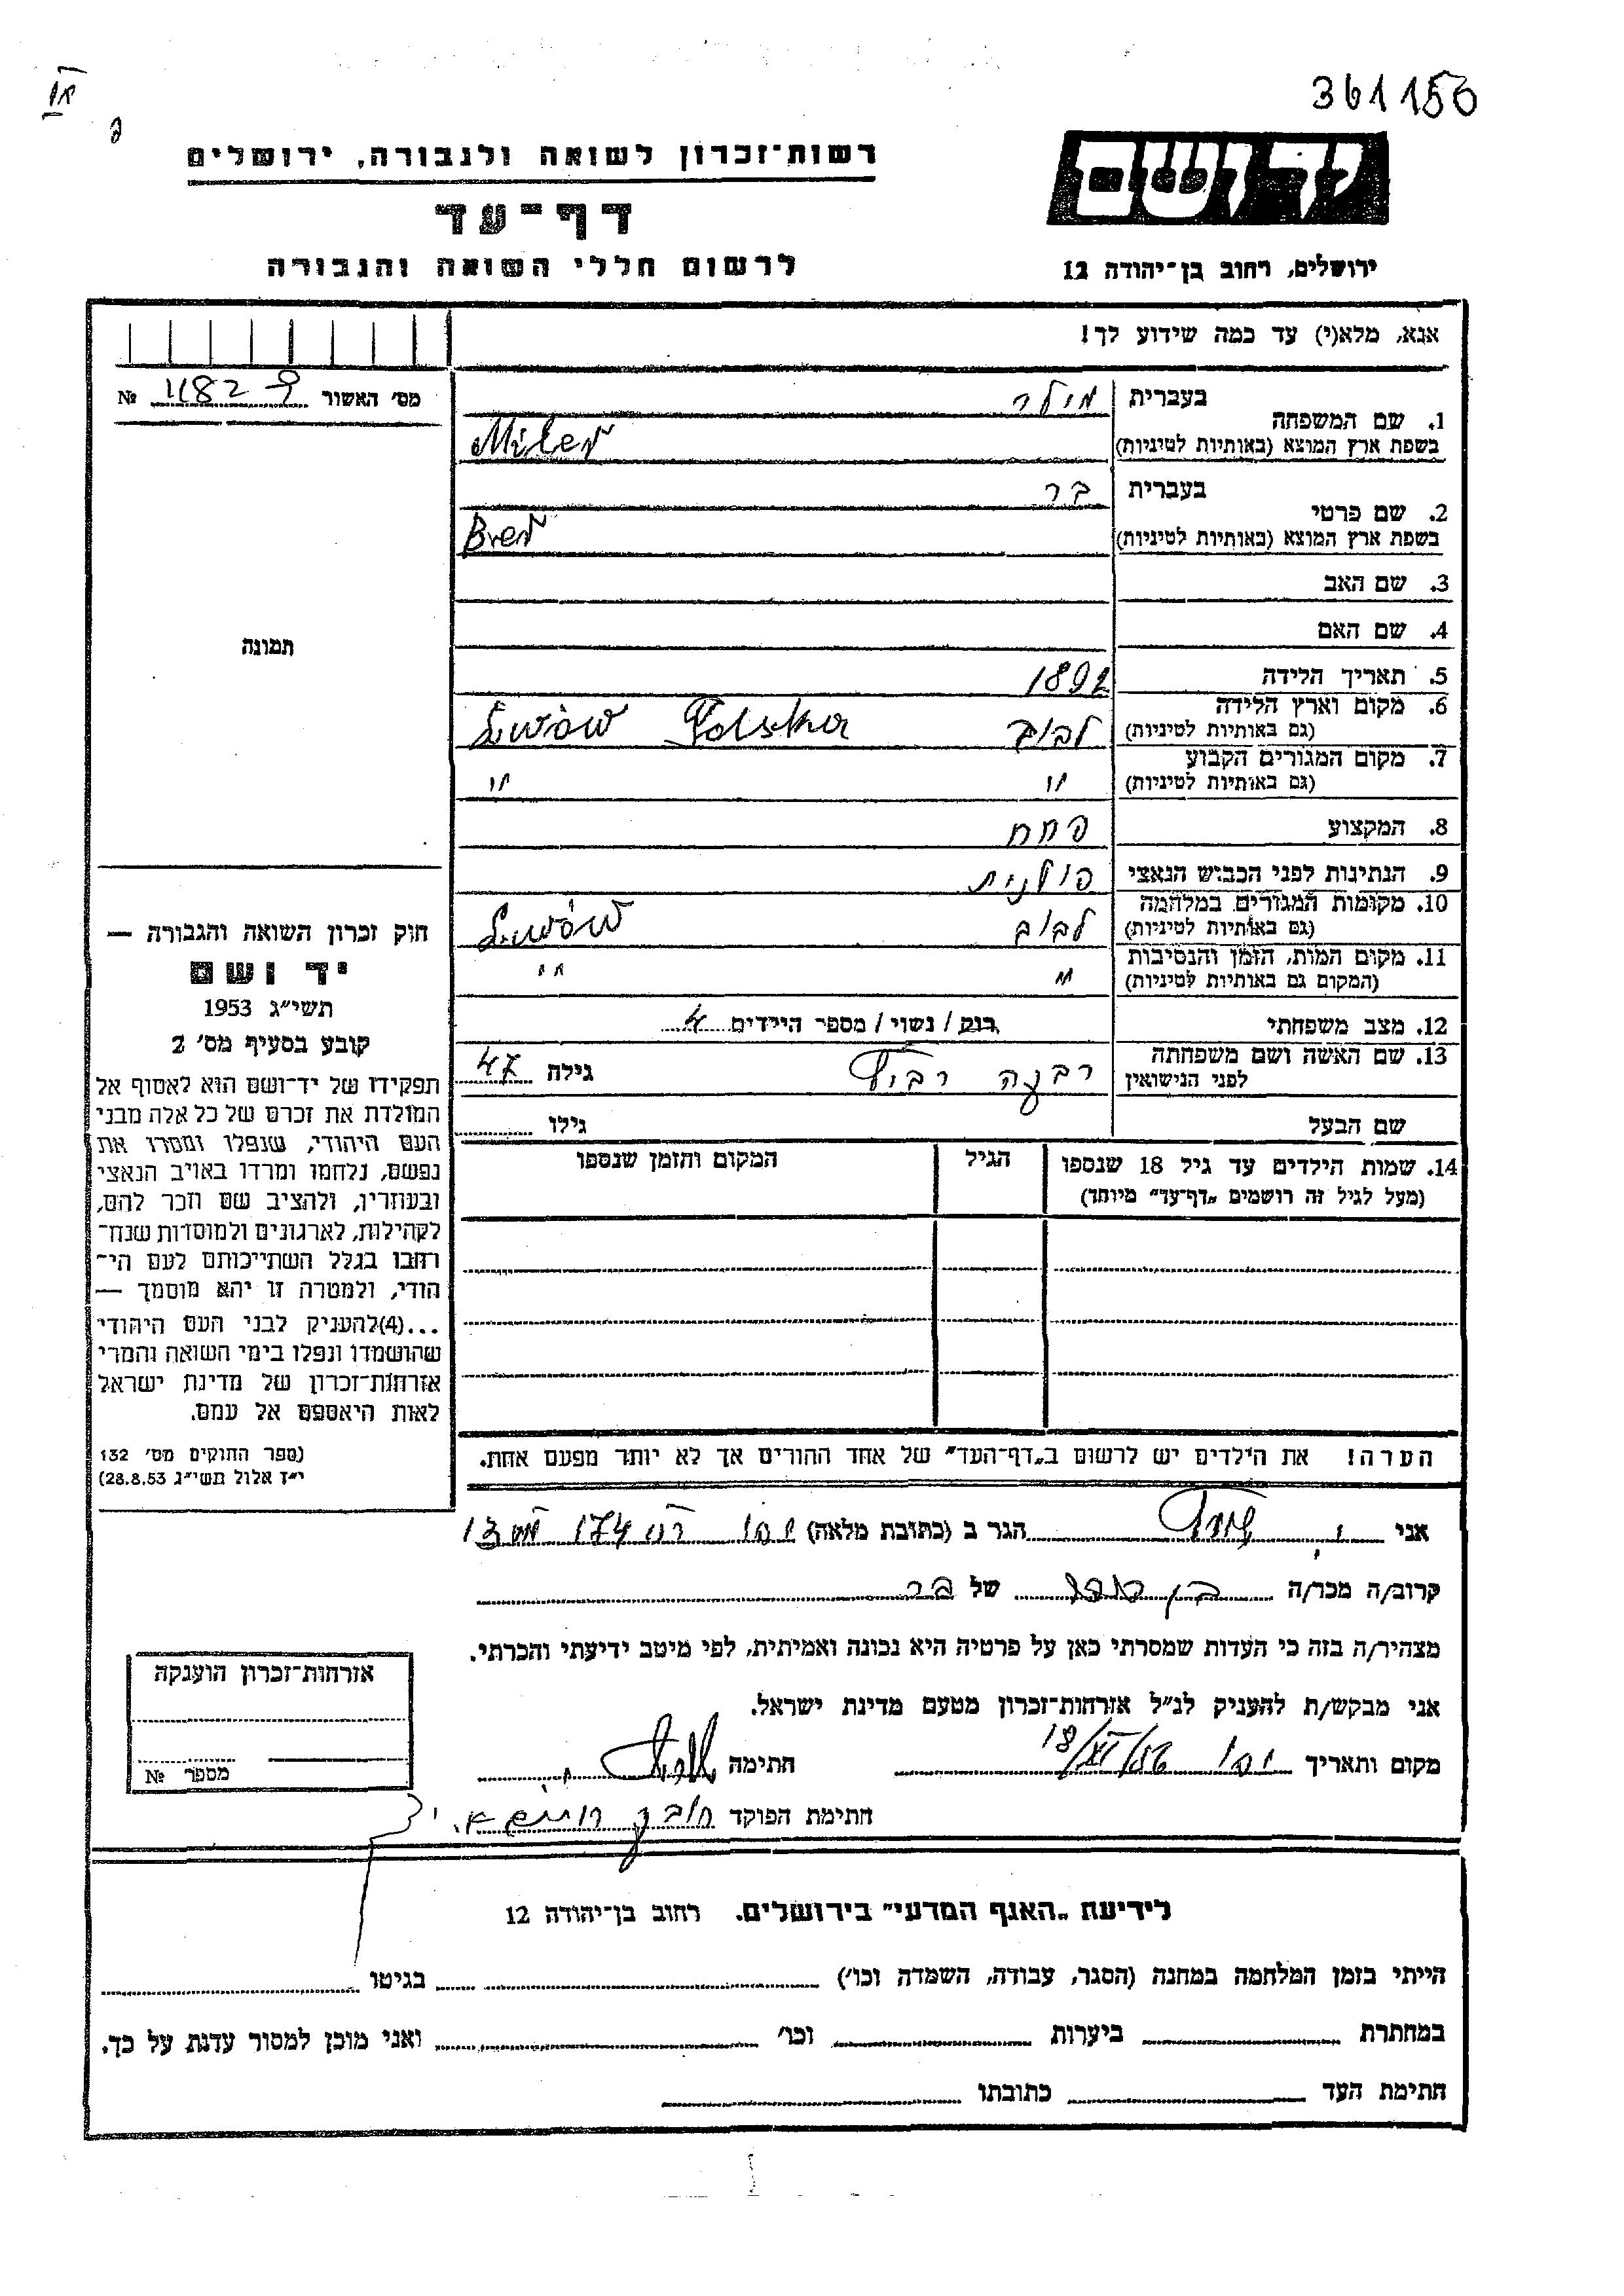 361150
רשות־זכרון לשואה ולגבורה, ירושלים
יד ושם
דף־עד
לרשום חללי השואה והגבורה
ירושלים, רחוב בן־יהודה 12
אנא, מלא(י) עד כמה שידוע לך!
מס׳ האשור № 11829
1. שם המשפחה
בעברית מילר
בשפת ארץ המוצא (באותיות לטיניות) Miler
2. שם פרטי
בעברית בר
בשפת ארץ המוצא (באותיות לטיניות) Ber
3. שם האב
4. שם האם
תמונה
5. תאריך הלידה 1892
6. מקום וארץ הלידה
(גם באותיות לטיניות) לבוב Lwów Polska
7. מקום המגורים הקבוע
(גם באותיות לטיניות) " "
8. המקצוע פחח
9. הנתינות לפני הכבוש הנאצי פולנית
10. מקומות המגורים במלחמה
(גם באותיות לטיניות) לבוב Lwów
11. מקום המות, הזמן והנסיבות
(המקום גם באותיות לטיניות) " "
12. מצב משפחתי רווק / נשוי / מספר הילדים 4
13. שם האשה ושם משפחתה
לפני הנישואין גילה 47
שם הבעל גילו
14. שמות הילדים עד גיל 18 שנספו הגיל המקום והזמן שנספו
(מעל לגיל זה רושמים „דף־עד״ מיוחד)
חוק זכרון השואה והגבורה —
יד ושם
תשי״ג 1953
קובע בסעיף מס׳ 2
תפקידו של יד־ושם הוא לאסוף אל
המולדת את זכרם של כל אלה מבני
העם היהודי, שנפלו ומסרו את
נפשם, נלחמו ומרדו באויב הנאצי
ובעוזריו, ולהציב שם וזכר להם,
לקהילות, לארגונים ולמוסדות שנח־
רחבו בגלל השתייכותם לעם הי־
הודי, ולמטרה זו יהא מוסמך —
...(4)להעניק לבני העם היהודי
שהושמדו ונפלו בימי השואה והמרי
אזרחות־זכרון של מדינת ישראל
לאות היאספם אל עמם.
(ספר החוקים מס׳ 132
י״ז אלול תשי״ג 28.8.53)
הערה! את הילדים יש לרשום ב„דף־העד״ של אחד ההורים אך לא יותר מפעם אחת.
אני הגר ב (כתובת מלאה) יפו 174 13
קרוב/ה מכר/ה בן של בר
מצהיר/ה בזה כי העדות שמסרתי כאן על פרטיה היא נכונה ואמיתית, לפי מיטב ידיעתי והכרתי.
אני מבקש/ת להעניק לנ״ל אזרחות־זכרון מטעם מדינת ישראל.
מקום ותאריך יפו 18/XI/56 חתימה
חתימת הפוקד
אזרחות־זכרון הוענקה
מספר №
לידיעת „האגף המדעי״ בירושלים. רחוב בן־יהודה 12
הייתי בזמן המלחמה במחנה (הסגר, עבודה, השמדה וכו׳) בגיטו
במחתרת ביערות וכו׳ ואני מוכן למסור עדות על כך.
חתימת העד כתובתו